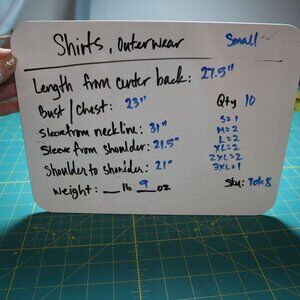 Shirts, Outerwear
Small
Length from center back: 27.5"
Bust / Chest: 23"
Sleeve from neckline: 31"
Sleeve from shoulder: 21.5"
Shoulder to shoulder: 21"
Weight: __ lb 9 oz
Qty 10
S=1
M=2
L=2
XL=2
2XL=2
3XL=1
Sku: Tote 8